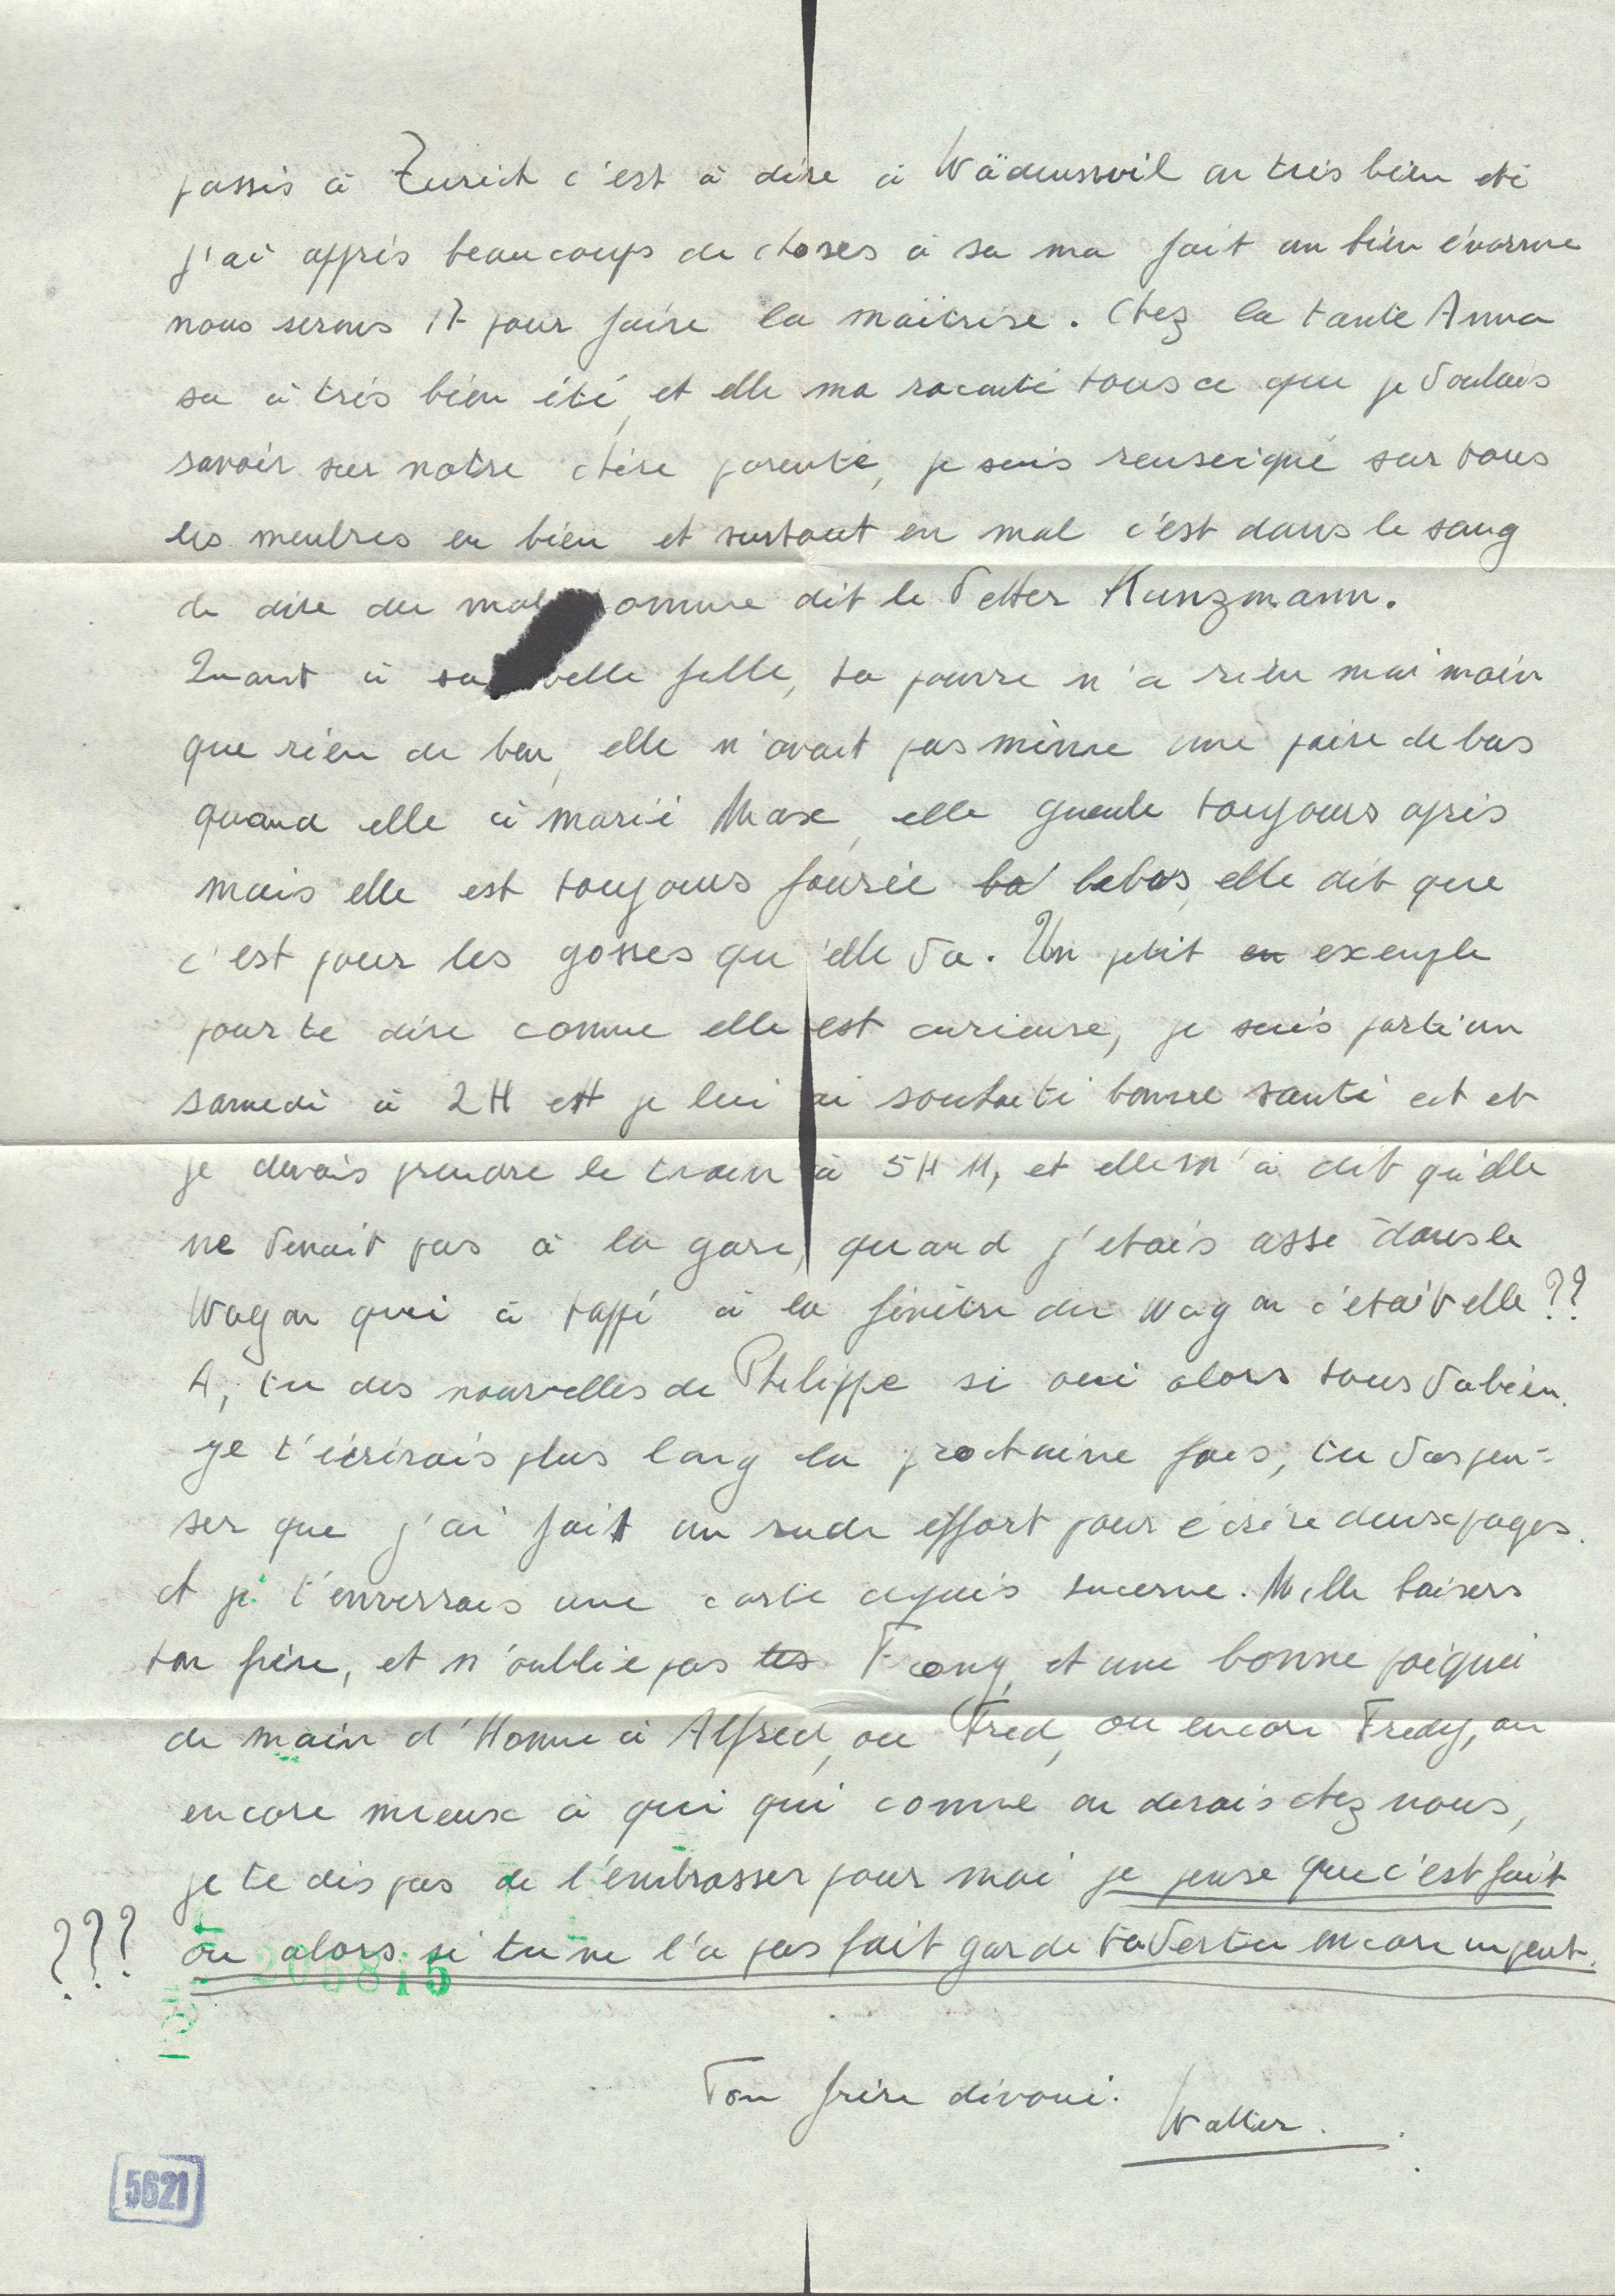 passés à Zurich c'est à dire à Wädenswil on très bien été
j'ai appris beaucoups de choses à sa ma fait un bien énorme
nous serons 17 pour faire la maitrise. Chez la tante Anna
sa à très bien été, et elle ma raconté tous ce que je voulais
savoir sur notre chère parenté, je suis renseigné sur tous
les menbres en bien et surtout en mal c'est dans le sang
de dire du mal omme dit le Vetter Kunzmann.
Quant à sa belle fille, sa pauvre n'a rien mai moin
que rien du tou, elle n'avait pas même une paire de bas
quand elle à marié Max, elle gueule toujours après
mais elle est toujours fourée la labas, elle dit que
c'est pour les gosses qu'elle va. Un petit en exemple
pour te dire comme elle est curieuse, je suis parti un
samedi à 2H et je lui ai souhaité bonne santé ect et
je devais prendre le train à 5H 11, et elle m'à dit qu'elle
ne venait pas à la gare, quand j'etais assi dans le
Wagon qui à tappé à la fenêtre du wagon c'etait elle??
A, tu des nouvelles de Philippe si oui alors tous va bien.
je t'écrirais plus long la prochaine fois, tu vas pen=
ser que j'ai fait un rude effort pour écrire deux pages.
et je t'enverrais une carte depuis Lucerne. Mille baisers
ton frère, et n'oublie pas tes et une bonne poignée
de main d'Homme à Alfred, ou Fred, ou encore Fredy, ou
encore mieux à qui qui comme on disais chez nous,
je te dis pas de l'embrasser pour moi je pense que c'est fait
??? ou alors si tu ne l'a pas fait garde ta vertu encore un peut.
206815
Ton frère dévoué.
Walter.
5621